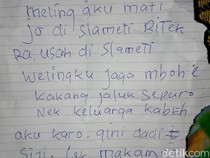 meling aku mati
jo di slameti Bitek
Ra usah di Slameti
Welingku jaga mboh e
kakang jaluk sepuro
Nek keluarga kabeh
aku karo. gini dadi
siji. makam
detikcom